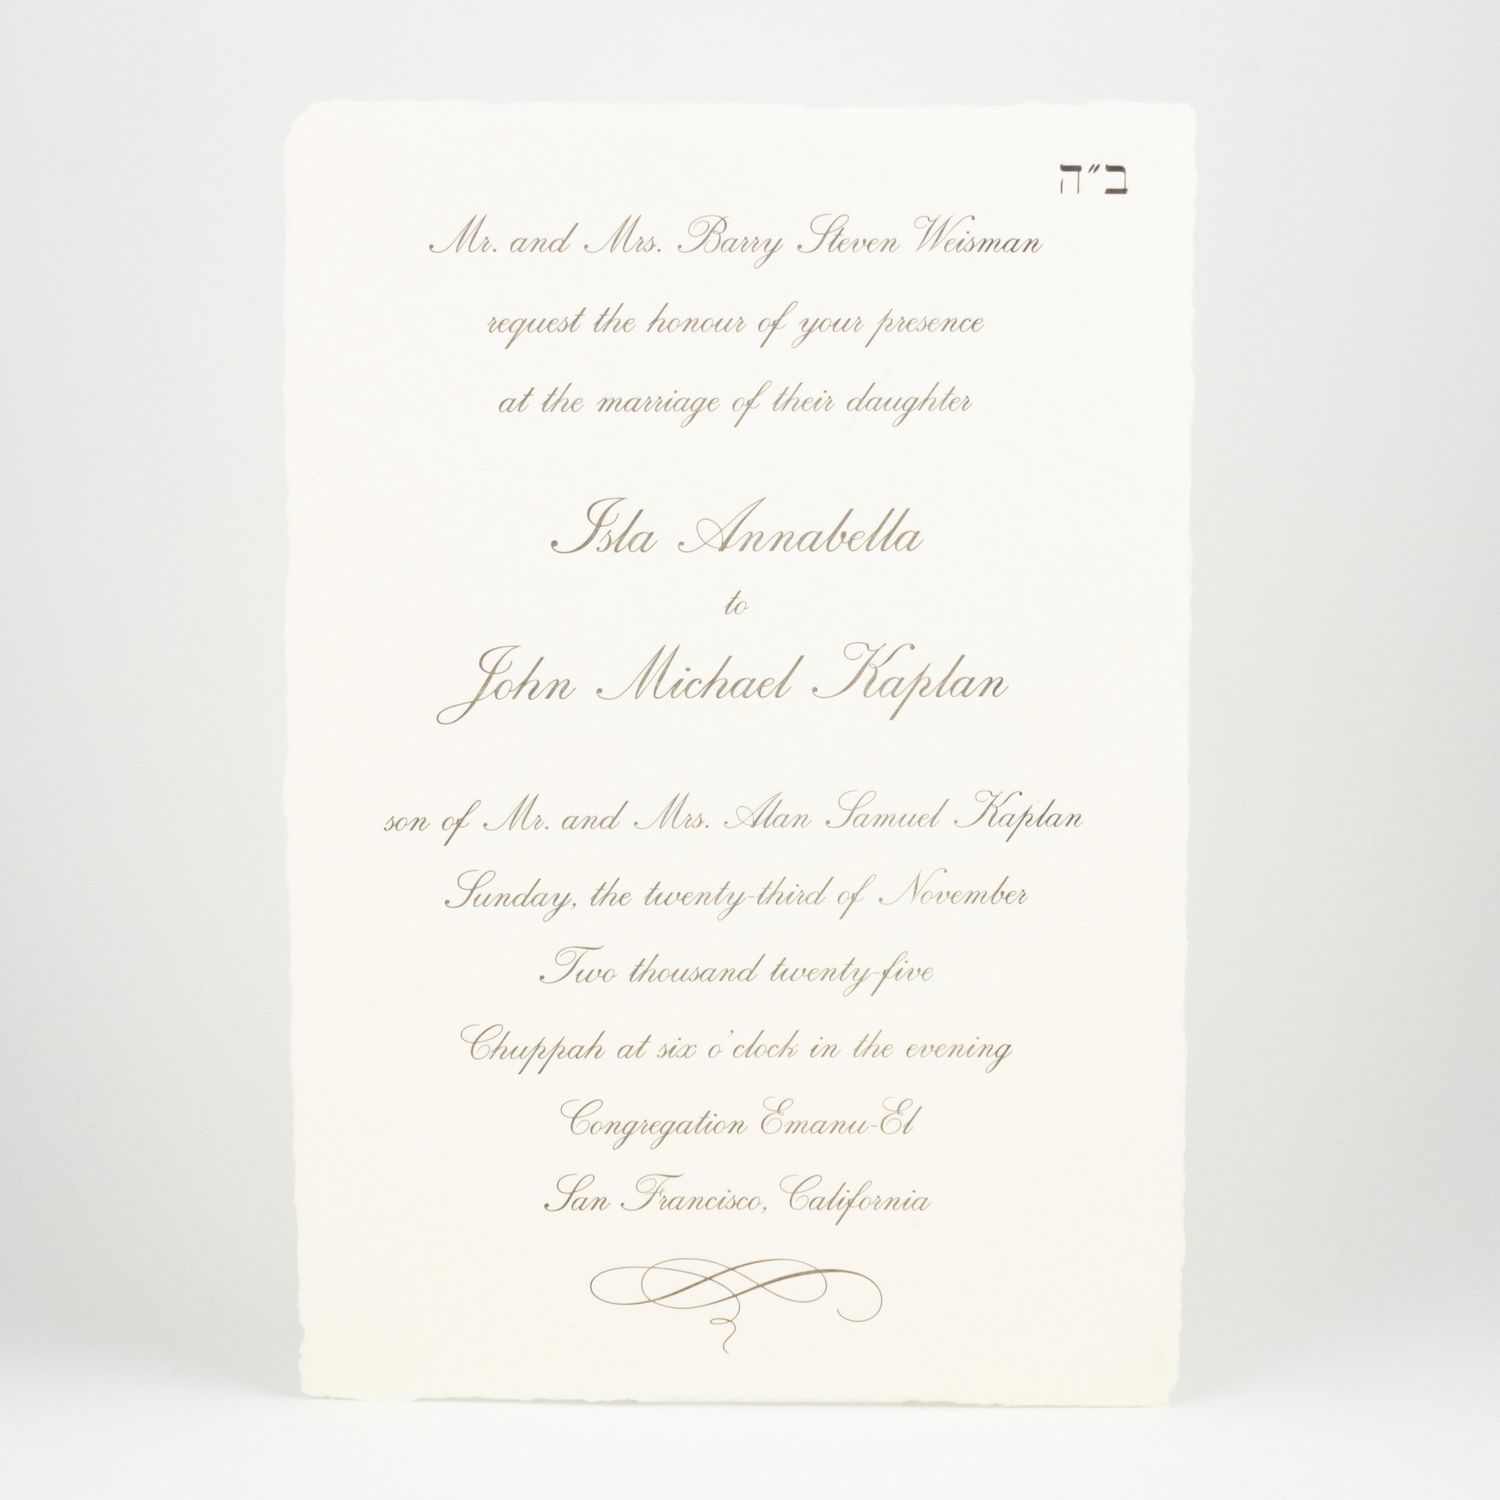 ב״ה
Mr. and Mrs. Barry Steven Weisman
request the honour of your presence
at the marriage of their daughter
Isla Annabella
to
John Michael Kaplan
son of Mr. and Mrs. Alan Samuel Kaplan
Sunday, the twenty-third of November
Two thousand twenty-five
Chuppah at six o'clock in the evening
Congregation Emanu-El
San Francisco, California